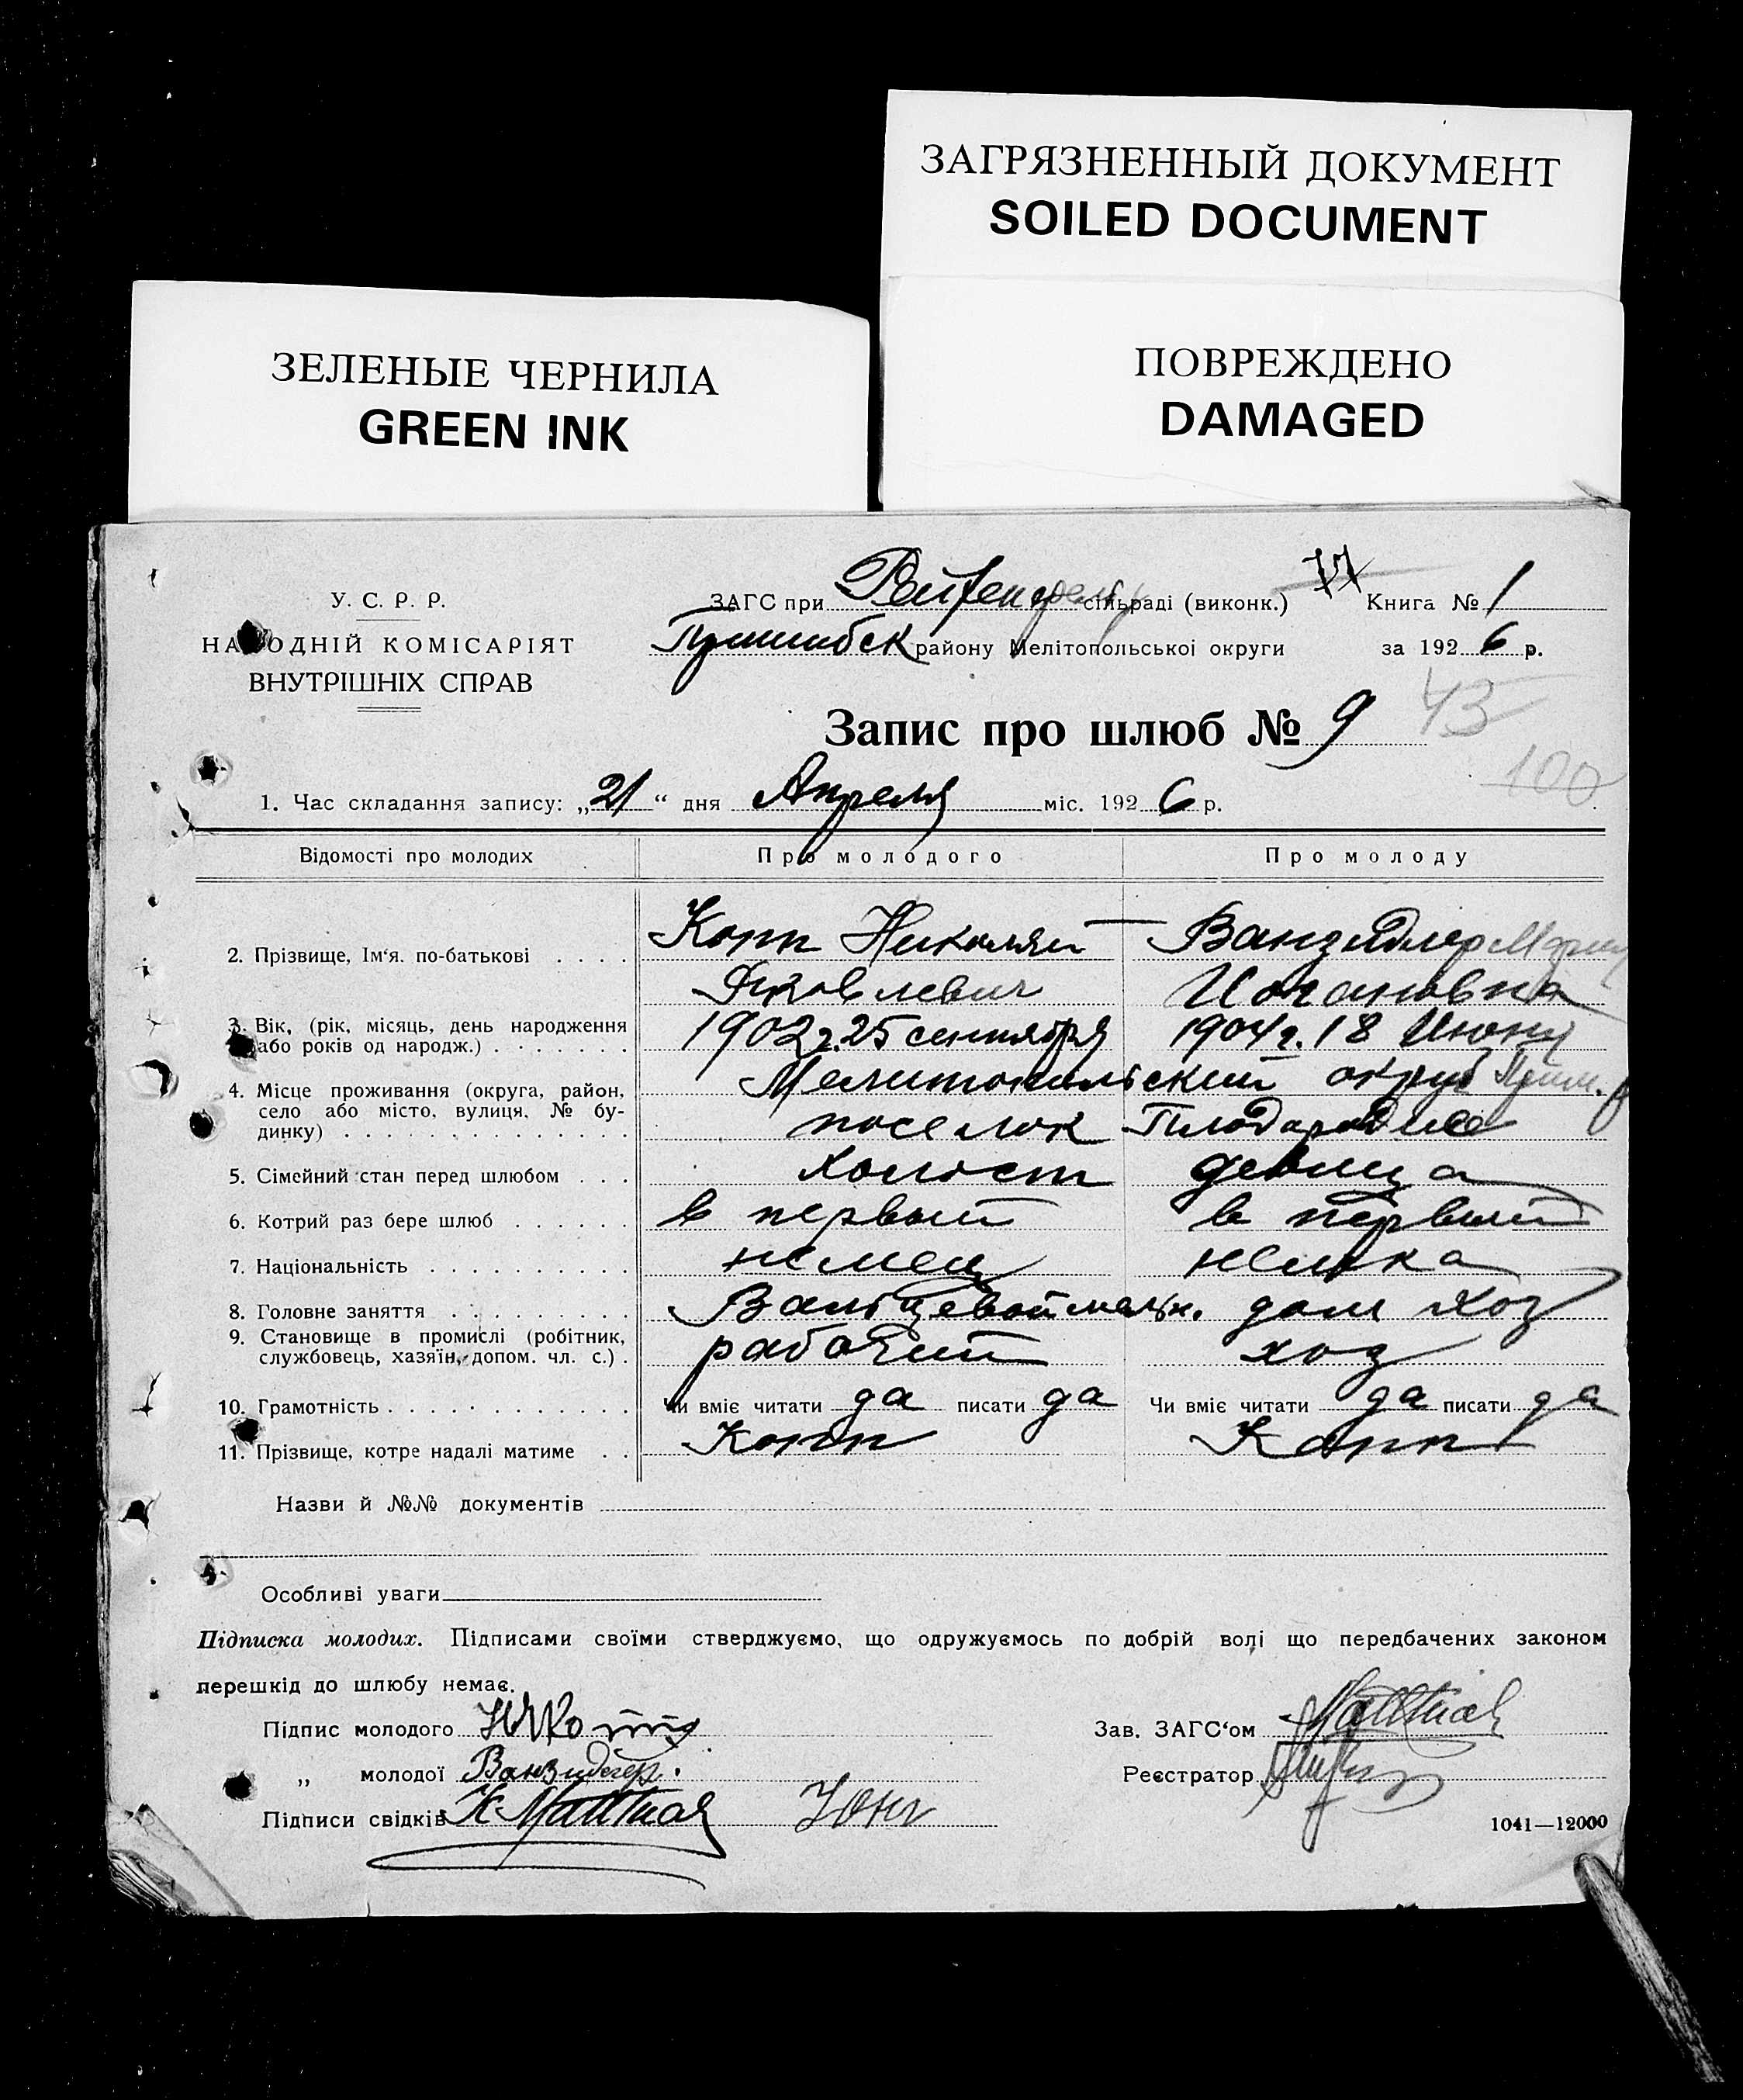 ЗАГРЯЗНЕННЫЙ ДОКУМЕНТ
SOILED DOCUMENT
ЗЕЛЕНЫЕ ЧЕРНИЛА
GREEN INK
ПОВРЕЖДЕНО
DAMAGED
У. С. Р. Р.
НАРОДНІЙ КОМІСАРІЯТ
ВНУТРІШНІХ СПРАВ
77
ЗАГС при сільраді (виконк.) Книга № 1
Пришибск району Мелітопольської округи за 1926 р.
Запис про шлюб № 9 43
100
1. Час складання запису: „21“ дня Апреля міс. 1926 р.
Відомості про молодих Про молодого Про молоду
2. Прізвище, Ім‘я. по-батькові Копп Николай Ванзидлер Мария
Яковлевич Иогановна
3. Вік, (рік, місяць, день народження або років од народж.) 1902 г. 25 сентября 1904 г. 18 Июня
4. Місце проживання (округа, район, Мелитопольский округ Приш. р
село або місто, вулиця, № бу-
динку) поселок Плодородие
5. Сімейний стан перед шлюбом холост девица
6. Котрий раз бере шлюб в первый в первый
7. Національність немец немка
8. Головне заняття Вальцевой мельн. дом хоз
9. Становище в промислі (робітник,
службовець, хазяїн, допом. чл. с.) рабочий хоз
10. Грамотність Чи вміє читати да писати да Чи вміє читати да писати да
11. Прізвище, котре надалі матиме Копп Копп
Назви й №№ документів
Особливі уваги
Підписка молодих. Підписами своїми стверджуємо, що одружуємось по добрій волі що передбачених законом
перешкід до шлюбу немає.
Підпис молодого Зав. ЗАГС‘ом Matthias
„ молодої Ванзидлер. Реєстратор
Підписи свідків K Matthias Юнг
1041—12000